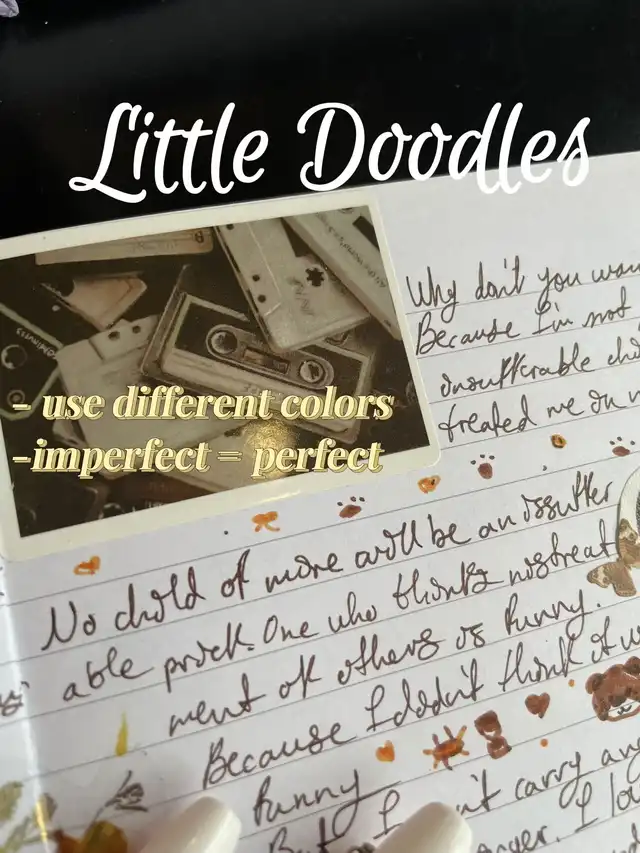 Little Doodles
- use different colors
-imperfect = perfect
Why don't you
Because I'm not
insufferable
treated me
No child of mine will be an insuffer
able prick. One who thinks mistreat
ment of others is funny.
Because I didn't think it
funny
But I can't carry
anger. I